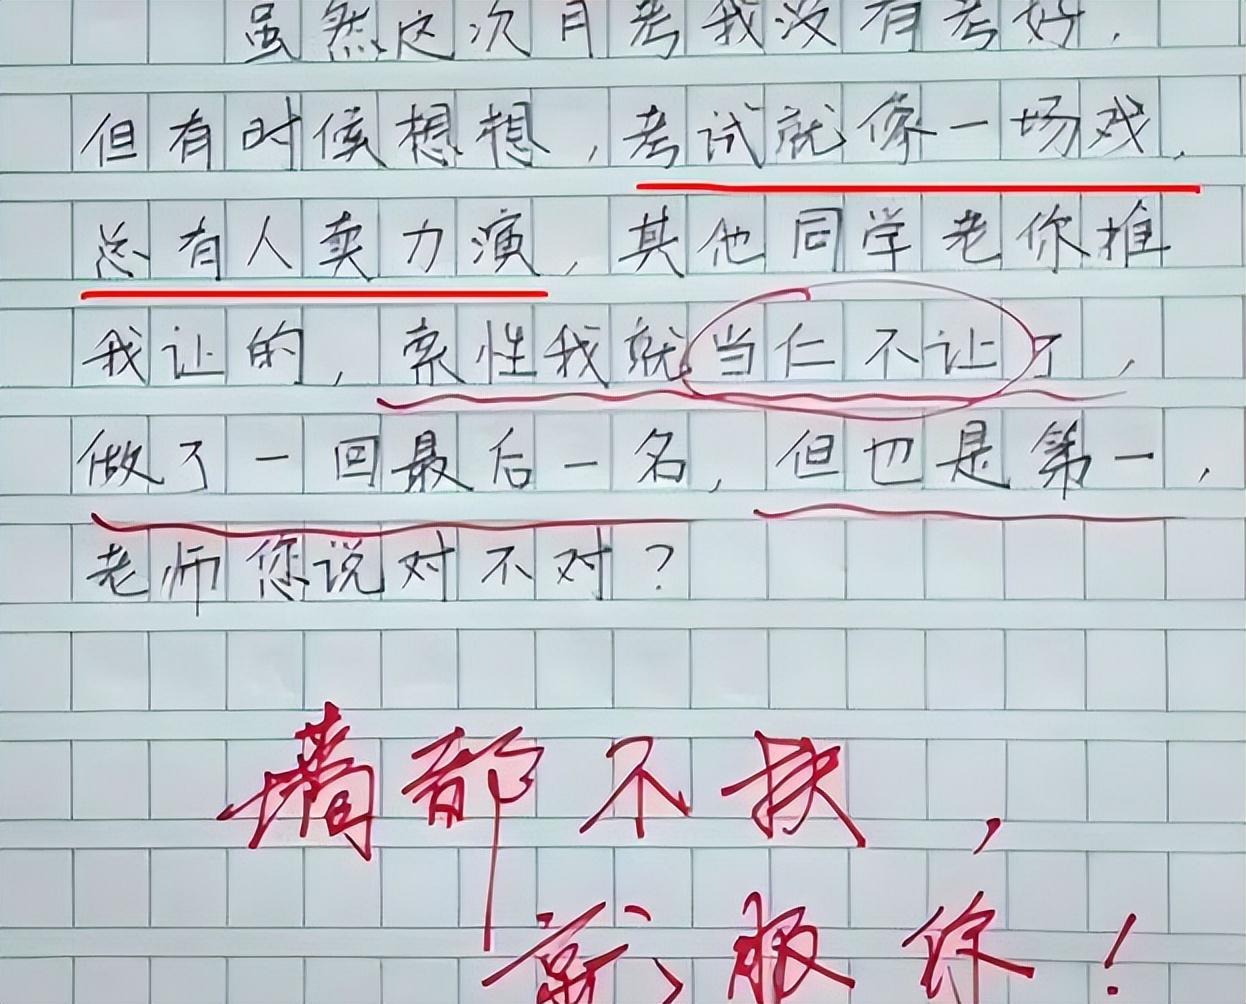 虽然这次月考我没有考好，
但有时候想想，考试就像一场戏，
总有人卖力演，其他同学老你推
我让的，索性我就当仁不让了，
做了一回最后一名，但也是第一，
老师您说对不对？
墙都不扶，
就服你！